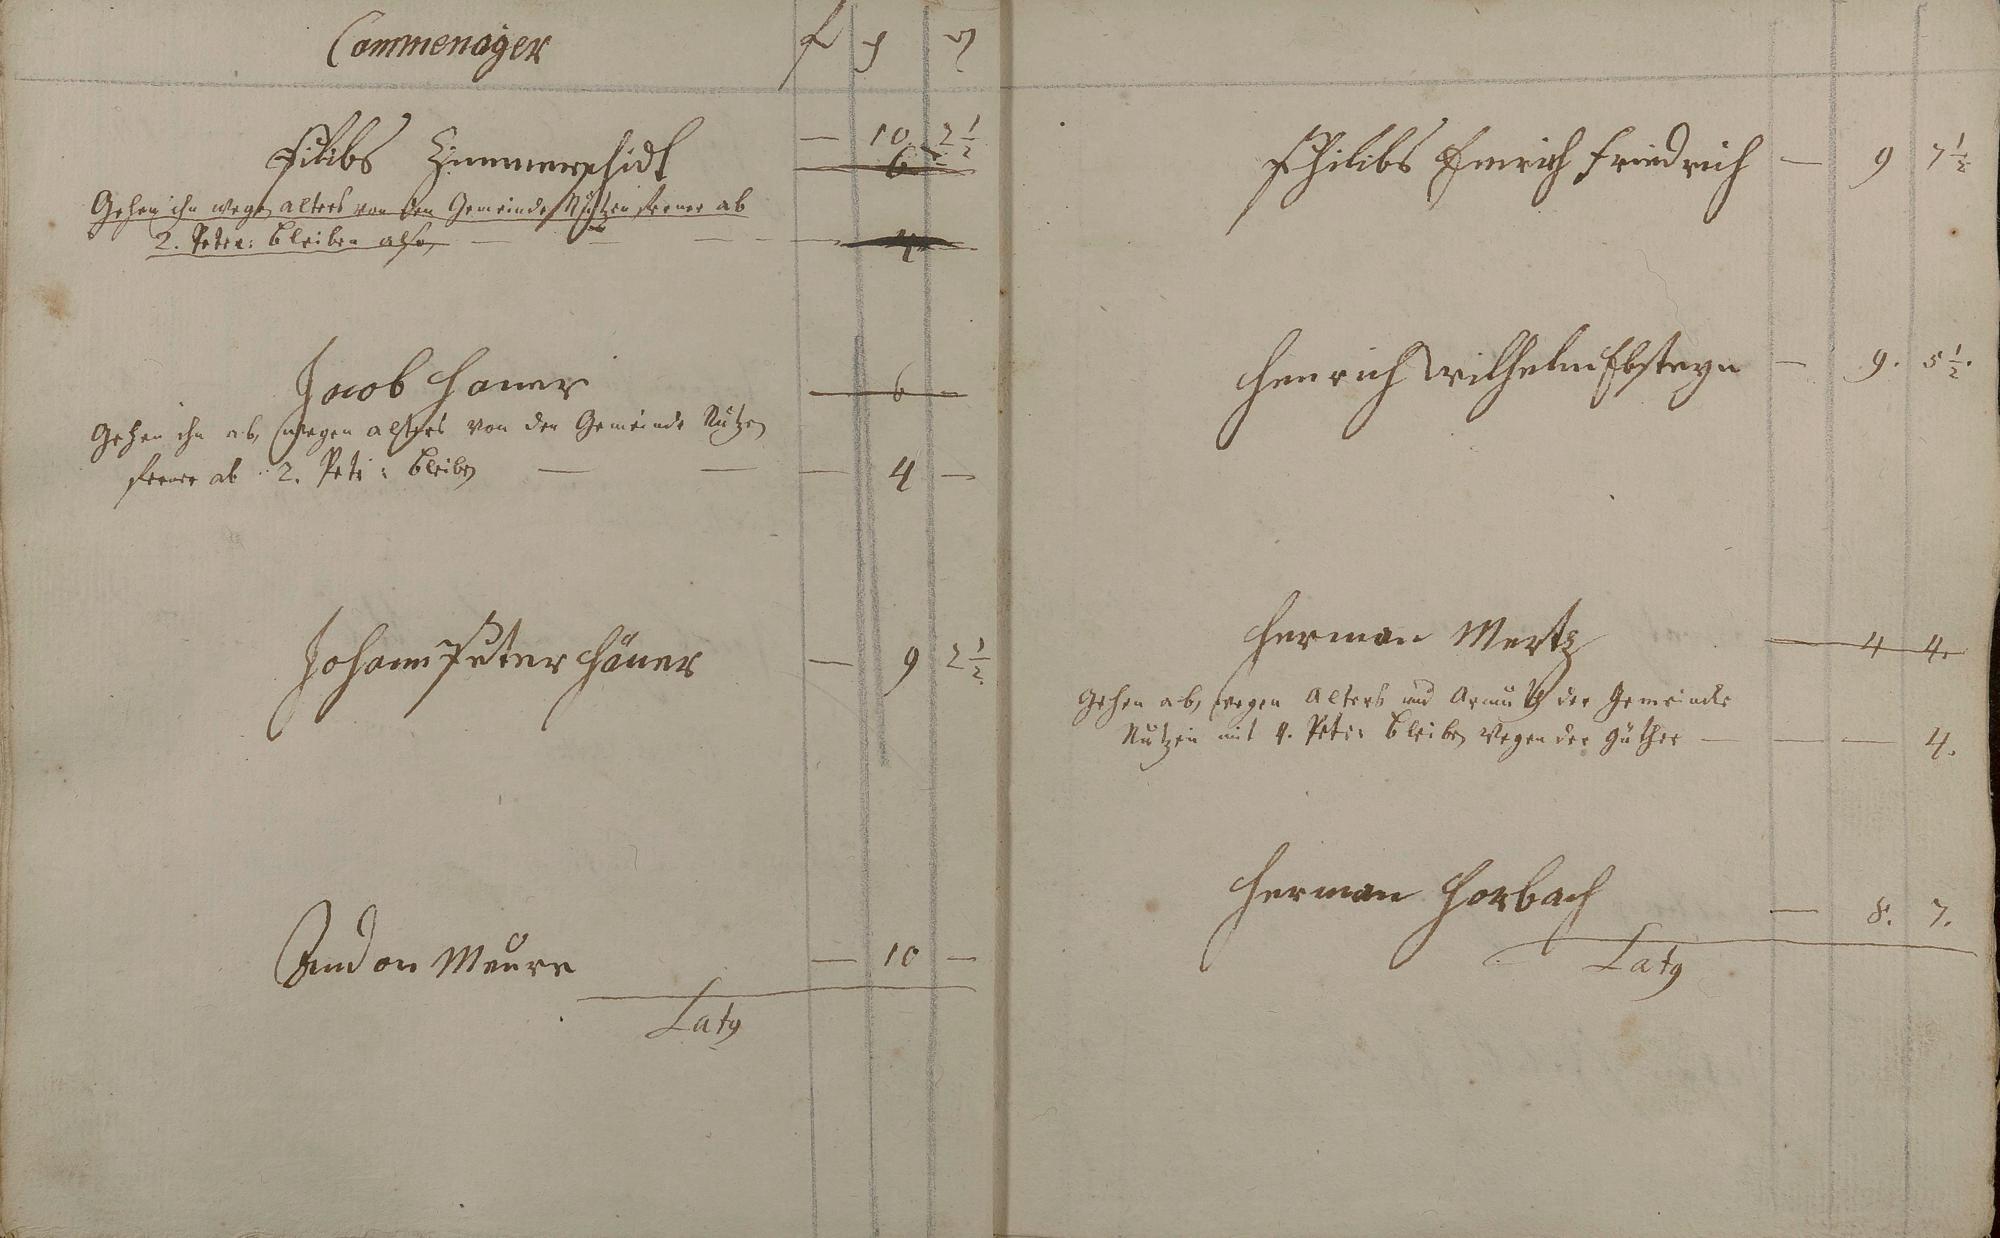 Commenager f ß ₰
Filibs Zimmerschidt — 10 2 1/2
— 6 —
Gehen ihn wegen alters von den Gemeinde Nutzen ferner ab
2. Petr: bleiben also, — — — — 4
Jacob Haner — 6 —
Gehen ihn ab, wegen alters von den Gemeinde Nutzen
ferner ab 2. Petr: bleiben — — — 4 —
Johann Peter Häner — 9 2 1/2
Andon Meürr — 10 —
Latq
Philibs Emrich Friedrich — 9 7 1/2
Henrich Wilhelm Ebsteyn — 9. 5 1/2.
Herman Mertz — 4 4.
Gehen ab, wegen Alters und Armuth der Gemeinde
Nutzen mit 4. Petr: bleiben wegen der Güther — — — 4.
Herman Horbach — 8. 7.
Latq